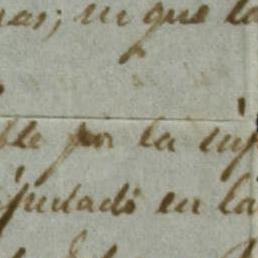 nas; ni que la
ble por la inj
iputado en la